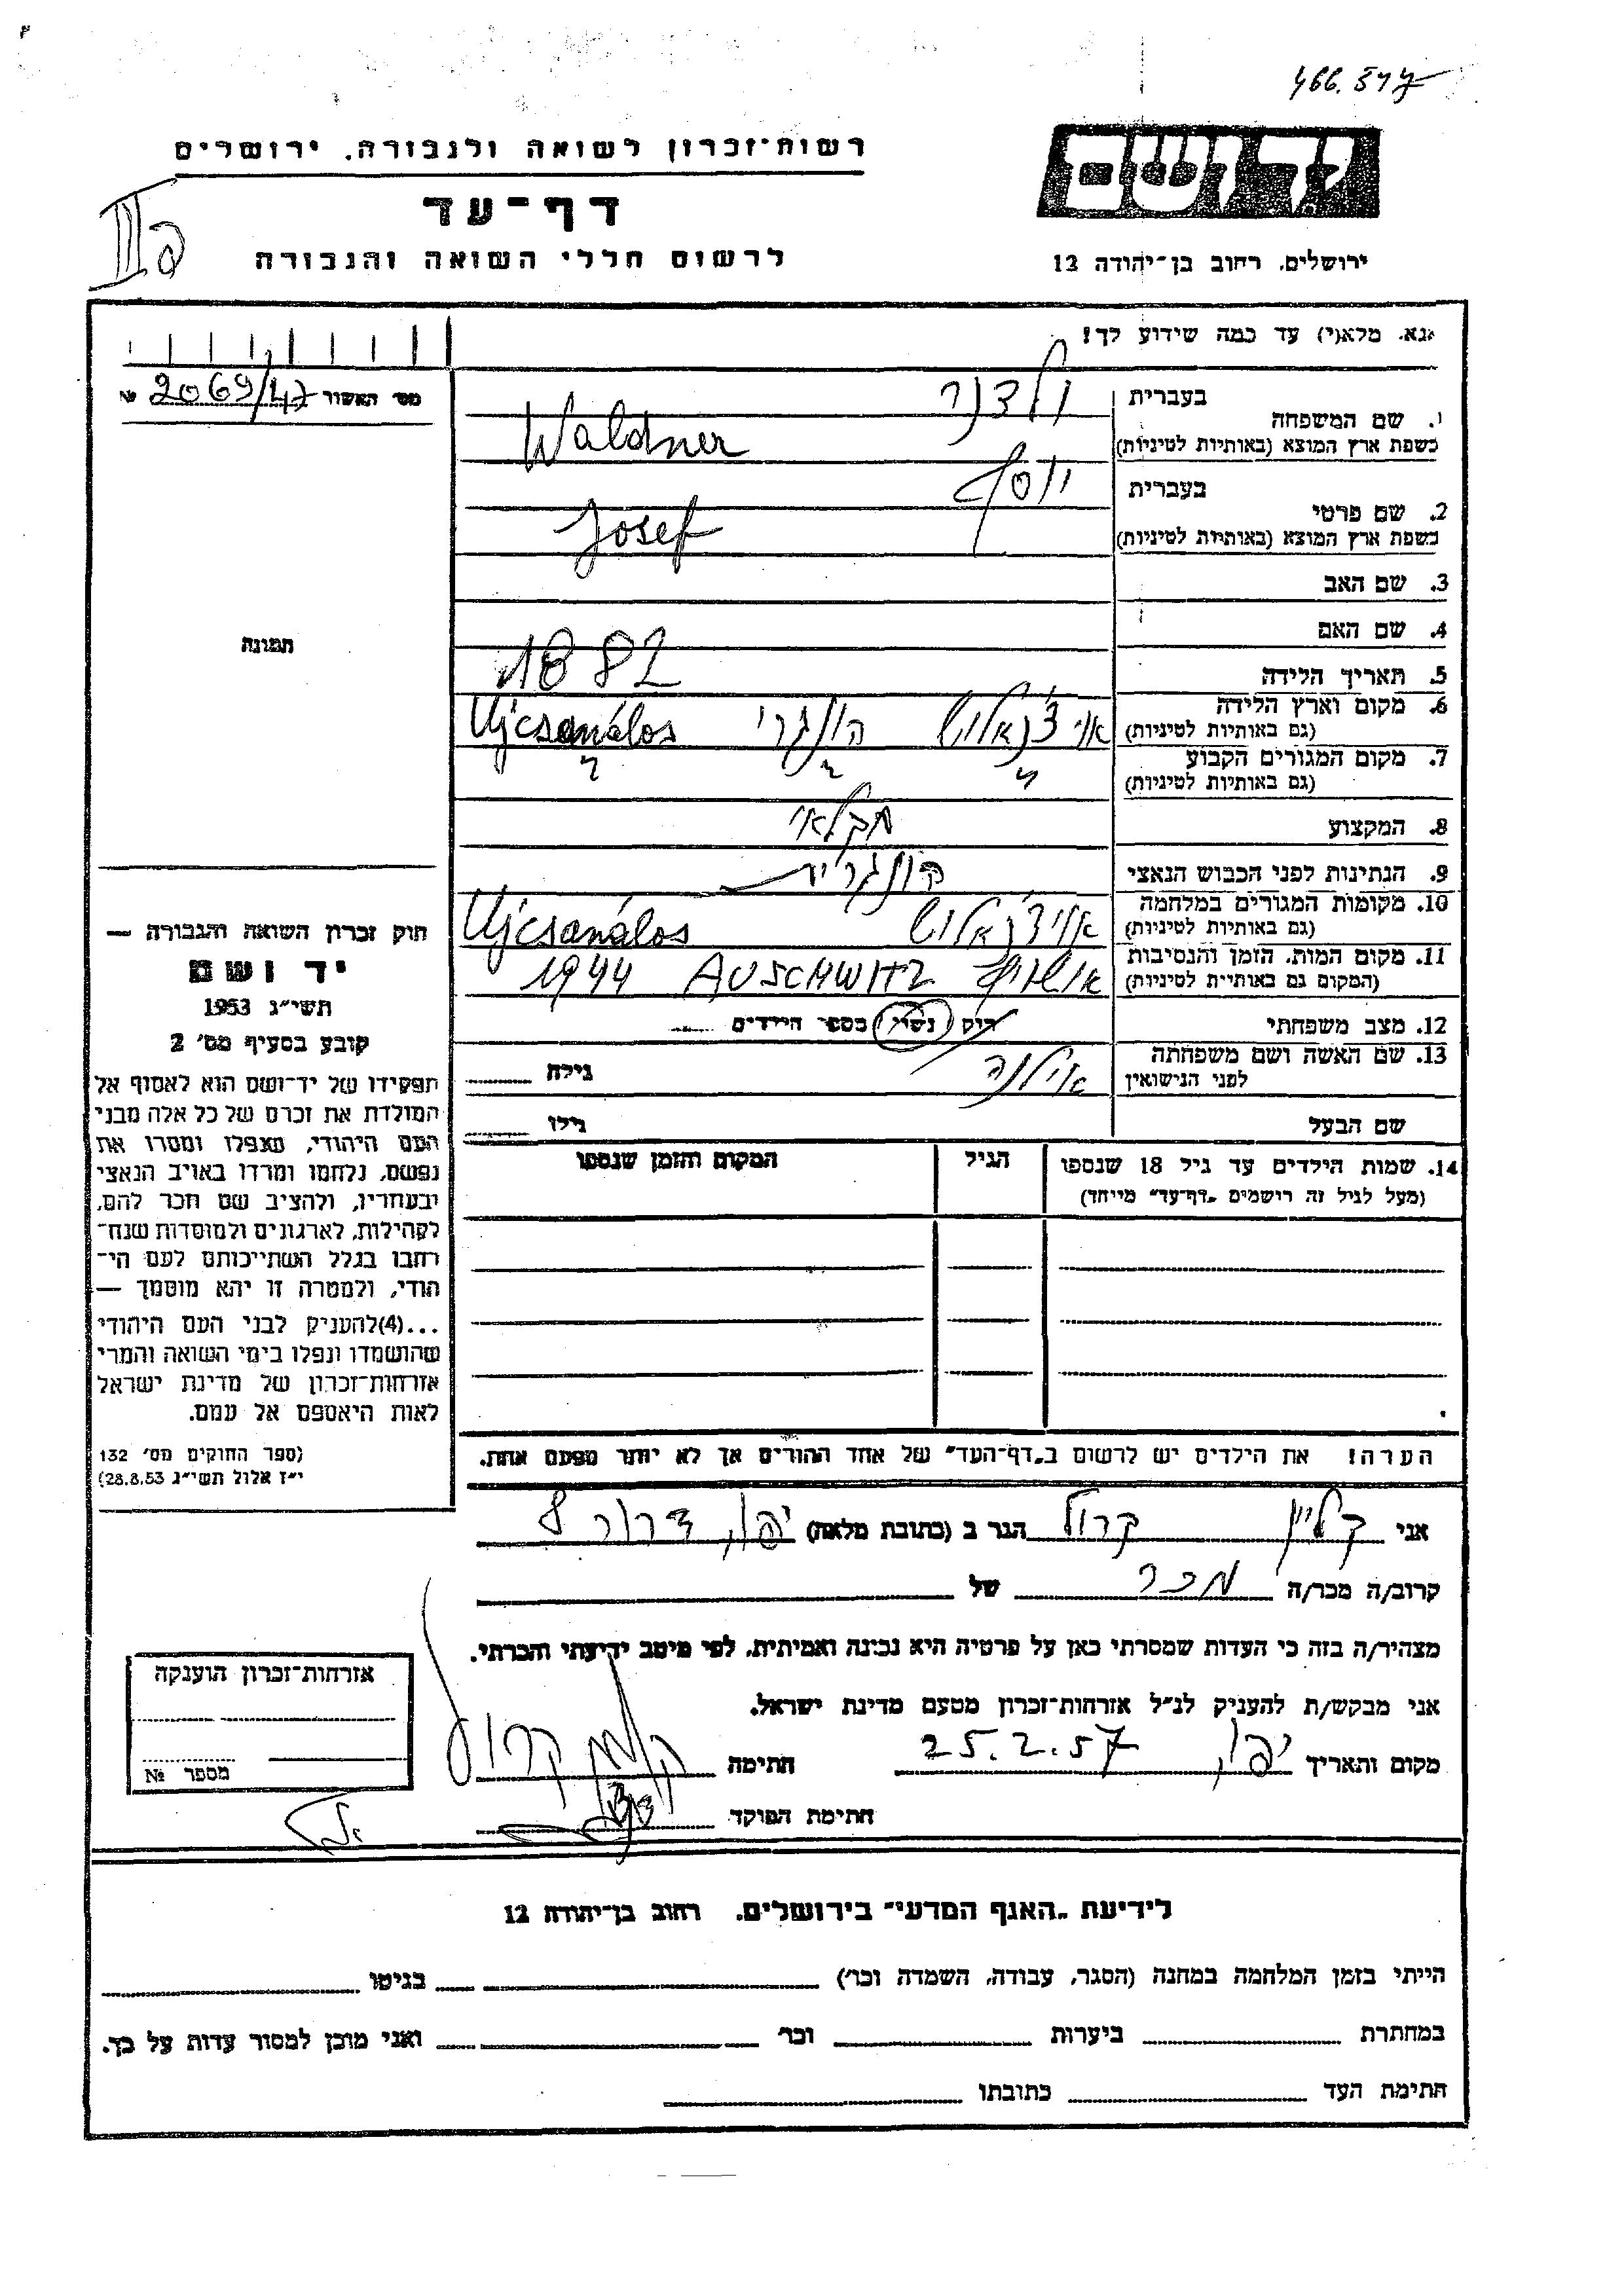 466.577
רשות-זכרון לשואה ולגבורה, ירושלים
דף-עד
לרשום חללי השואה והגבורה
יד ושם
ירושלים, רחוב בן-יהודה 12
נא, מלא(י) עד כמה שידוע לך!
מס׳ האשור 2069/47 №
1. שם המשפחה
בעברית ולדנר
בשפת ארץ המוצא (באותיות לטיניות) Waldner
2. שם פרטי
בעברית יוסף
בשפת ארץ המוצא (באותיות לטיניות) Josef
3. שם האב
4. שם האם
5. תאריך הלידה 1882
6. מקום וארץ הלידה
(גם באותיות לטיניות) הונגרי Ujcsanálos
7. מקום המגורים הקבוע
(גם באותיות לטיניות) " " "
8. המקצוע חקלאי
9. הנתינות לפני הכבוש הנאצי הונגרית
10. מקומות המגורים במלחמה
(גם באותיות לטיניות) Ujcsanálos
11. מקום המות, הזמן והנסיבות
(המקום גם באותיות לטיניות) אושוויץ AUSCHWITZ 1944
12. מצב משפחתי רוק נשוי מספר הילדים
13. שם האשה ושם משפחתה
לפני הנישואין אילנה גילה
שם הבעל גילו
14. שמות הילדים עד גיל 18 שנספו הגיל המקום והזמן שנספו
(מעל לגיל זה רושמים „דף-עד״ מייחד)
הערה! את הילדים יש לרשום ב„דף-העד״ של אחד ההורים אך לא יותר מפעם אחת.
תמונה
חוק זכרון השואה והגבורה —
יד ושם
תשי״ג 1953
קובע בסעיף מס׳ 2
תפקידו של יד-ושם הוא לאסוף אל
המולדת את זכרם של כל אלה מבני
העם היהודי, שנפלו ומסרו את
נפשם, נלחמו ומרדו באויב הנאצי
ובעוזריו, ולהציב שם וזכר להם,
לקהילות, לארגונים ולמוסדות שנח-
רבו בגלל השתייכותם לעם הי-
הודי, ולמטרה זו יהא מוסמך —
...(4) להעניק לבני העם היהודי
שהושמדו ונפלו בימי השואה והמרי
אזרחות-זכרון של מדינת ישראל
לאות היאספם אל עמם.
(ספר החוקים מס׳ 132
י״ז אלול תשי״ג 28.8.53)
אני קליין קרול הגר ב (כתובת מלאה) יפו, דרור 8
קרוב/ה מכר/ה מכר של
מצהיר/ה בזה כי העדות שמסרתי כאן על פרטיה היא נכונה ואמיתית, לפי מיטב ידיעתי והכרתי.
אני מבקש/ת להעניק לנ״ל אזרחות-זכרון מטעם מדינת ישראל.
מקום ותאריך יפו, 25.2.57 חתימה קליין קרול
חתימת הפוקד
אזרחות-זכרון הוענקה
מספר №
לידיעת „האגף המדעי״ בירושלים, רחוב בן-יהודה 12
הייתי בזמן המלחמה במחנה (הסגר, עבודה, השמדה וכו׳) בגיטו
במחתרת ביערות וכו׳ ואני מוכן למסור עדות על כך.
חתימת העד כתובתו